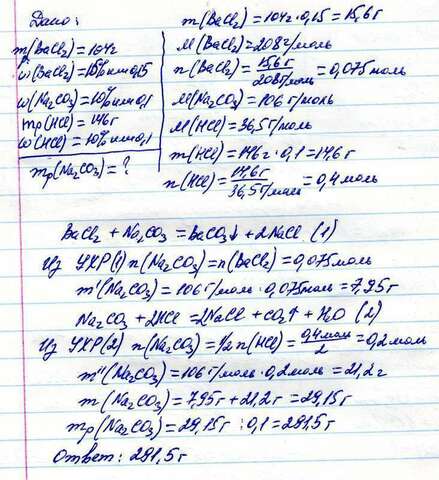 Дано:
m(BaCl₂) = 104г
р
ω(BaCl₂) = 15% или 0,15
ω(Na₂CO₃) = 10% или 0,1
mр(HCl) = 146г
ω(HCl) = 10% или 0,1
mр(Na₂CO₃) = ?
m(BaCl₂) = 104г · 0,15 = 15,6г
M(BaCl₂) = 208г/моль
n(BaCl₂) = 15,6г / 208г/моль = 0,075моль
M(Na₂CO₃) = 106г/моль
M(HCl) = 36,5г/моль
m(HCl) = 146г · 0,1 = 14,6г
n(HCl) = 14,6г / 36,5г/моль = 0,4моль
BaCl₂ + Na₂CO₃ = BaCO₃↓ + 2NaCl (1)
Из УХР(1) n(Na₂CO₃) = n(BaCl₂) = 0,075моль
m'(Na₂CO₃) = 106г/моль · 0,075моль = 7,95г
Na₂CO₃ + 2HCl = 2NaCl + CO₂↑ + H₂O (2)
Из УХР(2) n(Na₂CO₃) = 1/2 n(HCl) = 0,4моль / 2 = 0,2моль
m''(Na₂CO₃) = 106г/моль · 0,2моль = 21,2г
m(Na₂CO₃) = 7,95г + 21,2г = 29,15г
mр(Na₂CO₃) = 29,15г : 0,1 = 291,5г
Ответ: 291,5г